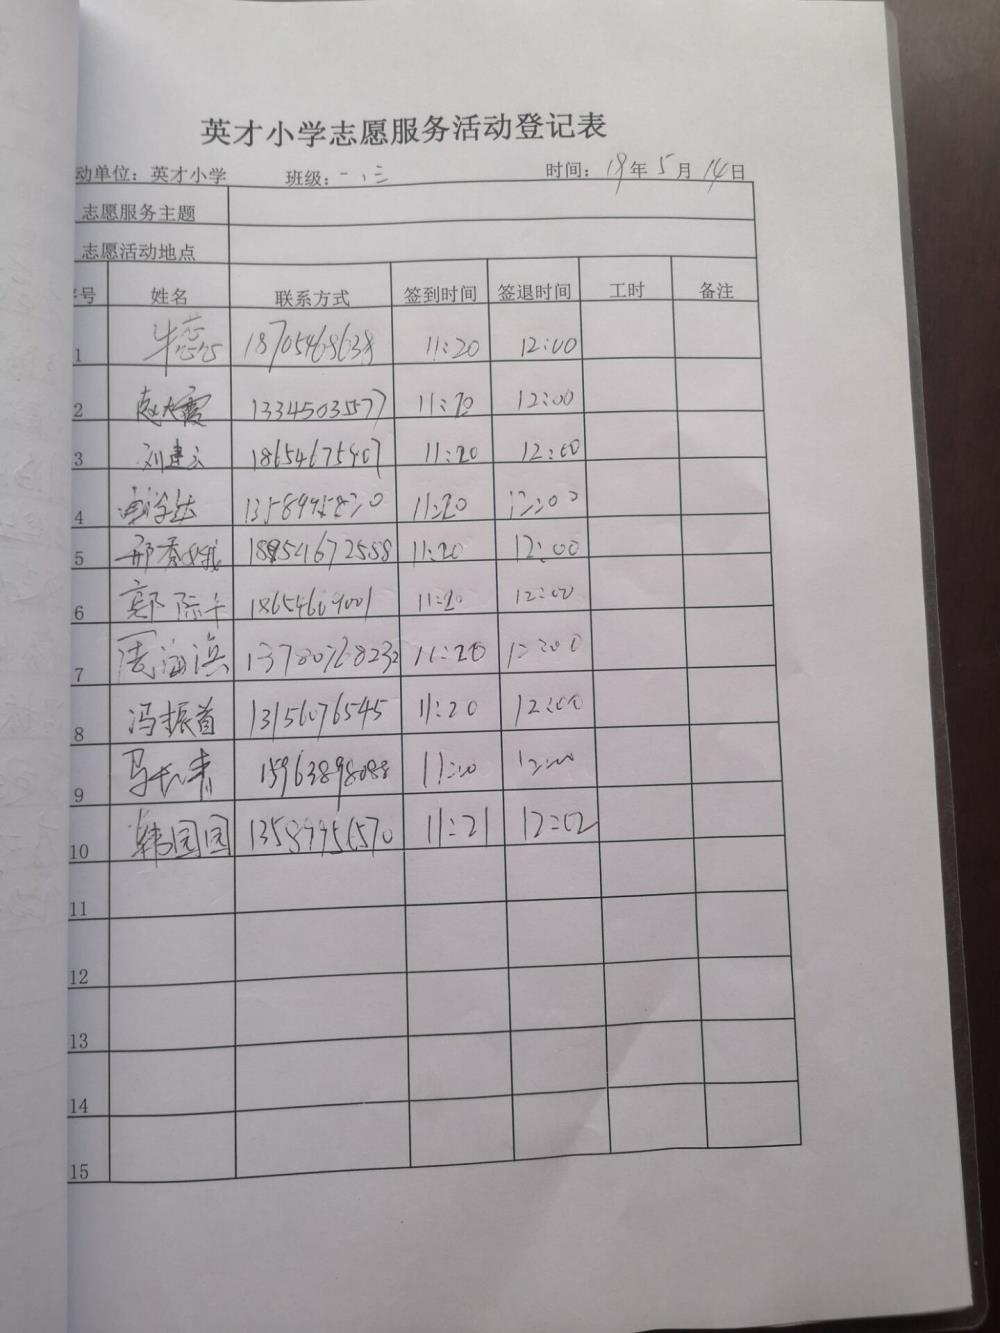 英才小学志愿服务活动登记表
动单位：英才小学 班级：一、三 时间：19年5月14日
志愿服务主题
志愿活动地点
号 姓名 联系方式 签到时间 签退时间 工时 备注
1 牛蕊 18705468638 11:20 12:00
2 赵大霞 13345035577 11:20 12:00
3 刘建云 18654675407 11:20 12:00
4 11:20 12:00
5 邢秀娥 18954672588 11:20 12:00
6 18654609001 11:20 12:00
7 周海滨 13780768232 11:20 12:00
8 冯振首 13156076545 11:20 12:00
9 马长青 15963898088 12:00
10 韩园园 11:21 12:02
11
12
13
14
15